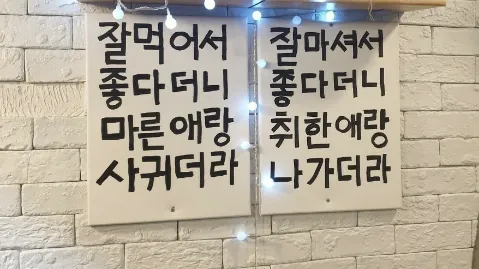 잘먹어서
좋다더니
마른애랑
사귀더라
잘마셔서
좋다더니
취한애랑
나가더라